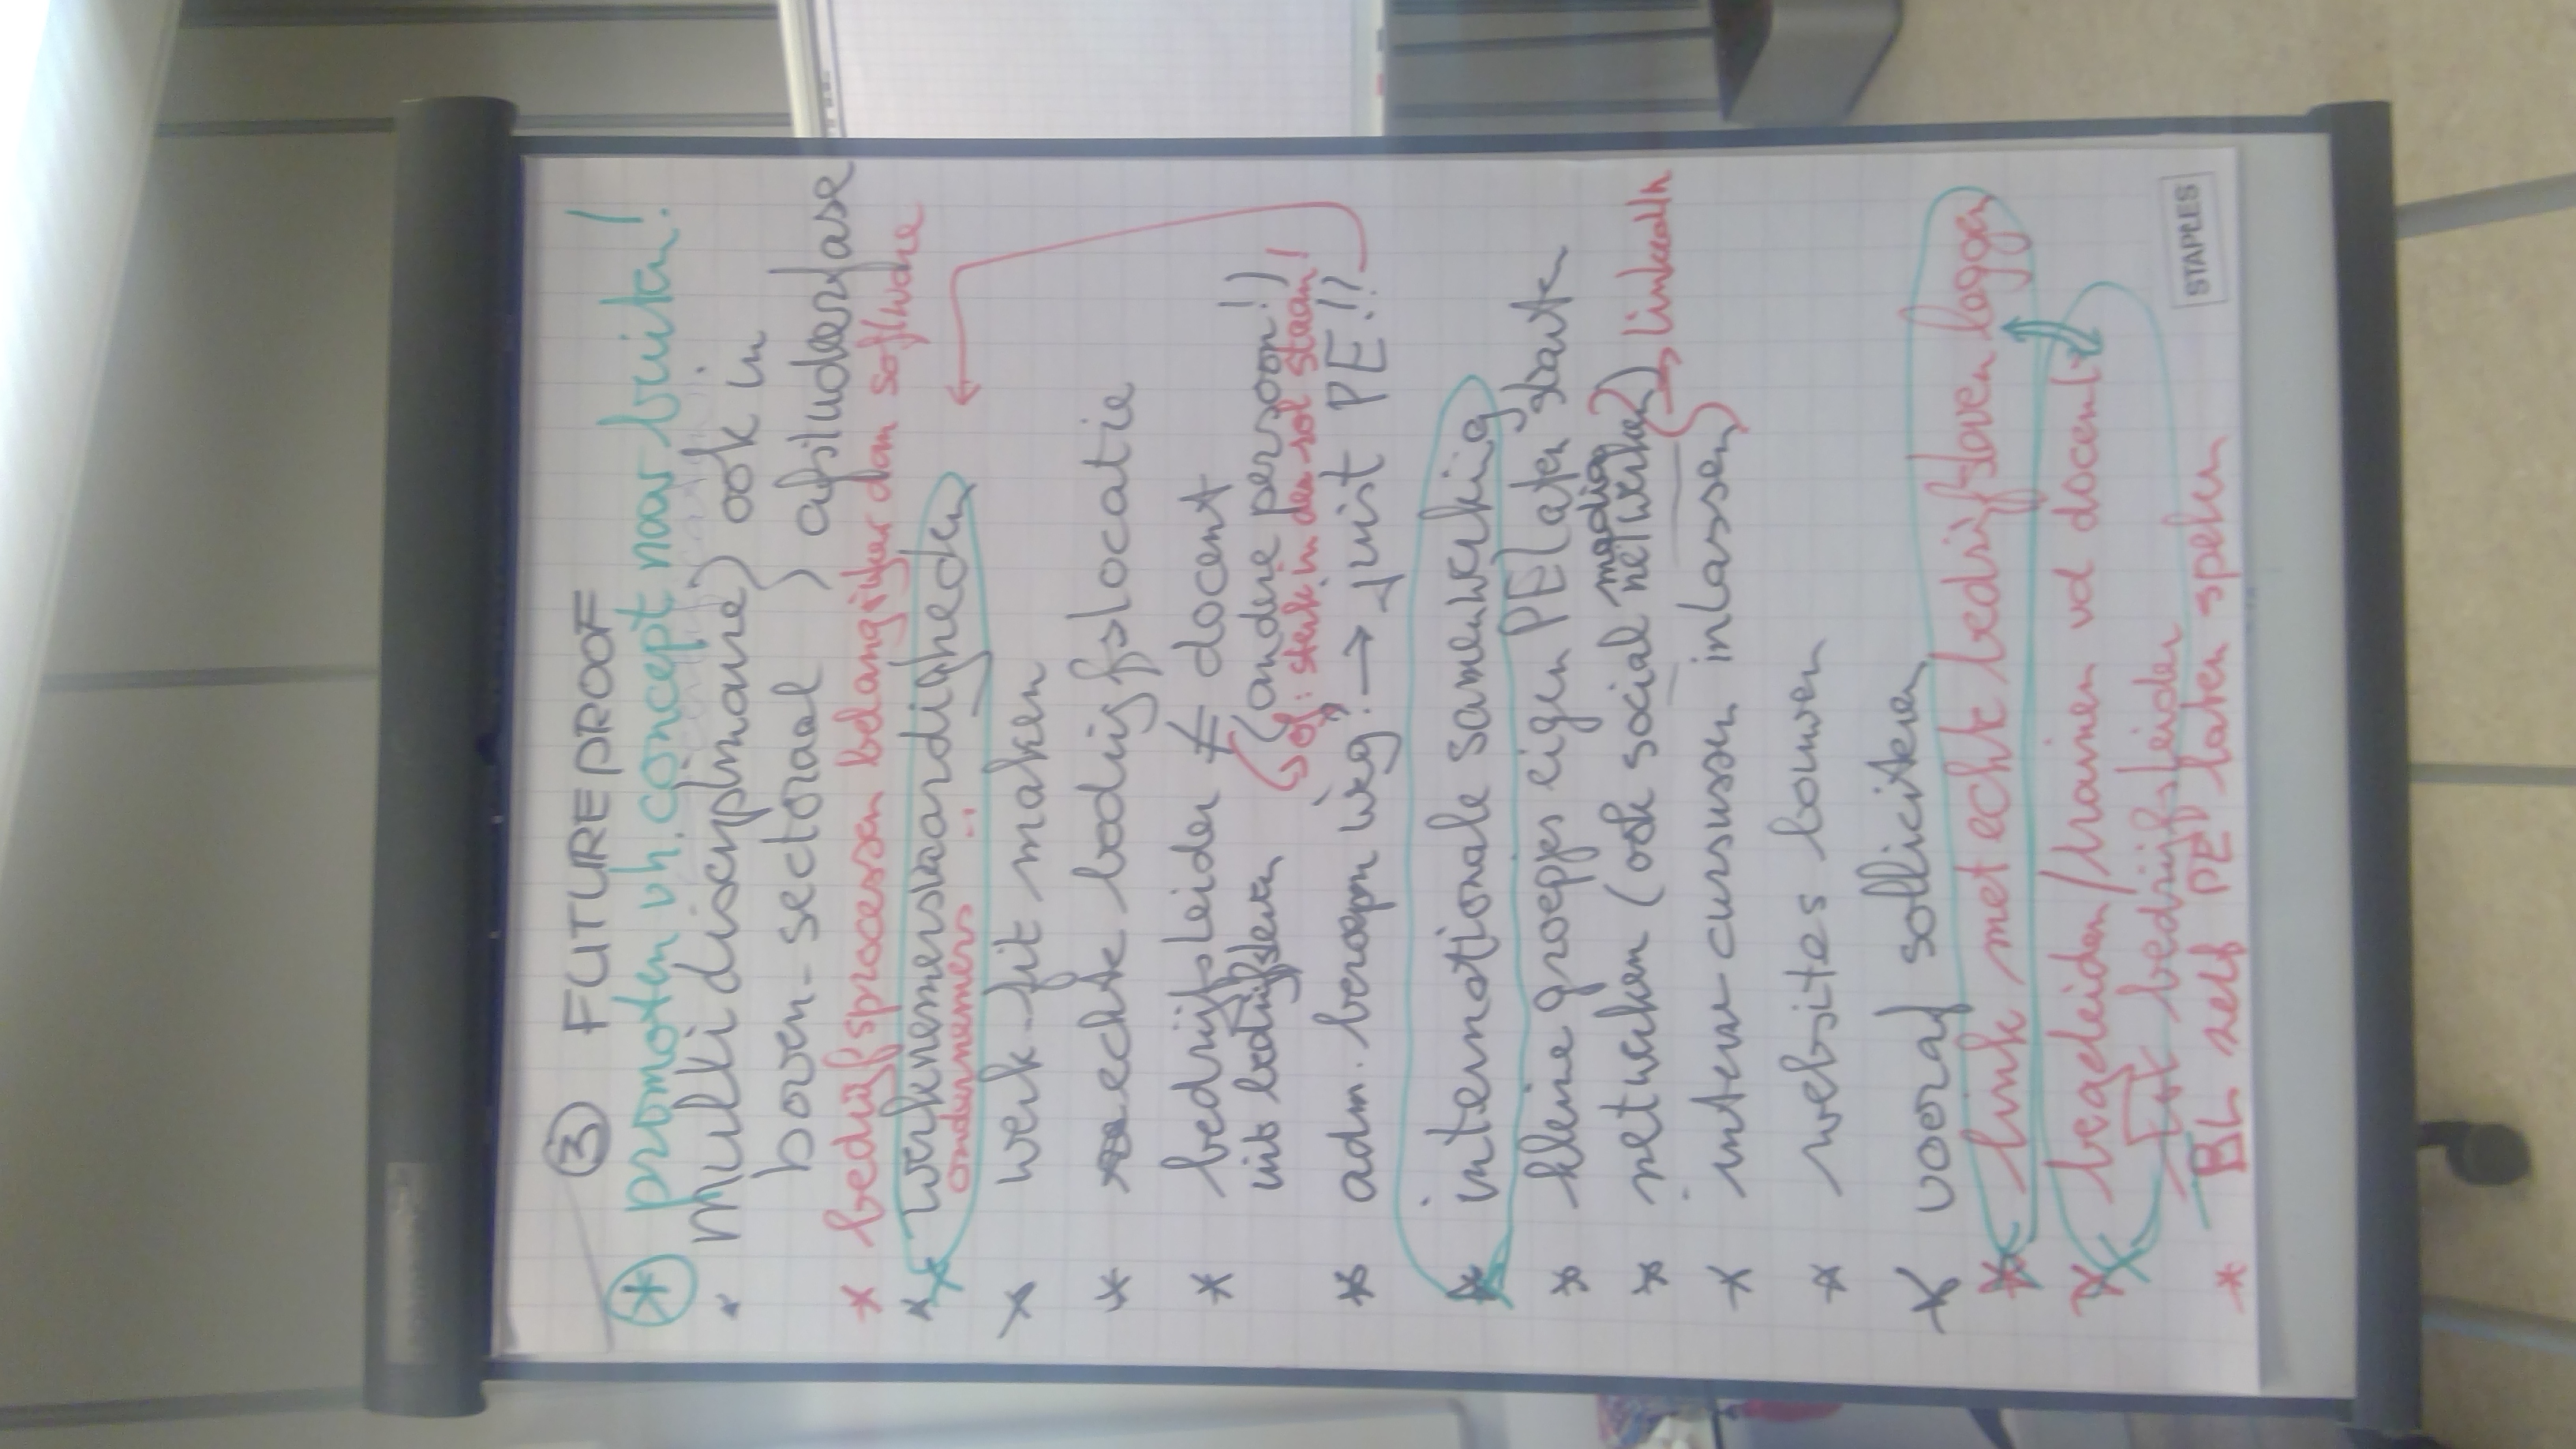 ③ FUTUREPROOF
* promoten vh. concept naar buiten!
* multidisciplinaire } ook in
boven-sectoraal } afstudeerfase
* bedrijfsprocessen belangrijker dan software
* werknemersvaardigheden
ondernemers
* werk-fit maken
* echte bedrijfslocatie
* bedrijfsleider ≠ docent
uit bedrijfsleven (andere persoon!)
↳ of: sterk in de rol staan!
* adm. beroepen weg? → juist PE!?
* internationale samenwerking
* kleine groepjes eigen PE laten starten
* netwerken (ook social media netwerken) → LinkedIn
* interne cursussen inlassen
* websites bouwen
* vooraf solliciteren
* link met echt bedrijfsleven leggen
* begeleiden/trainen vd docent
tot bedrijfsleider
* BL zelf PE laten spelen
STAPLES